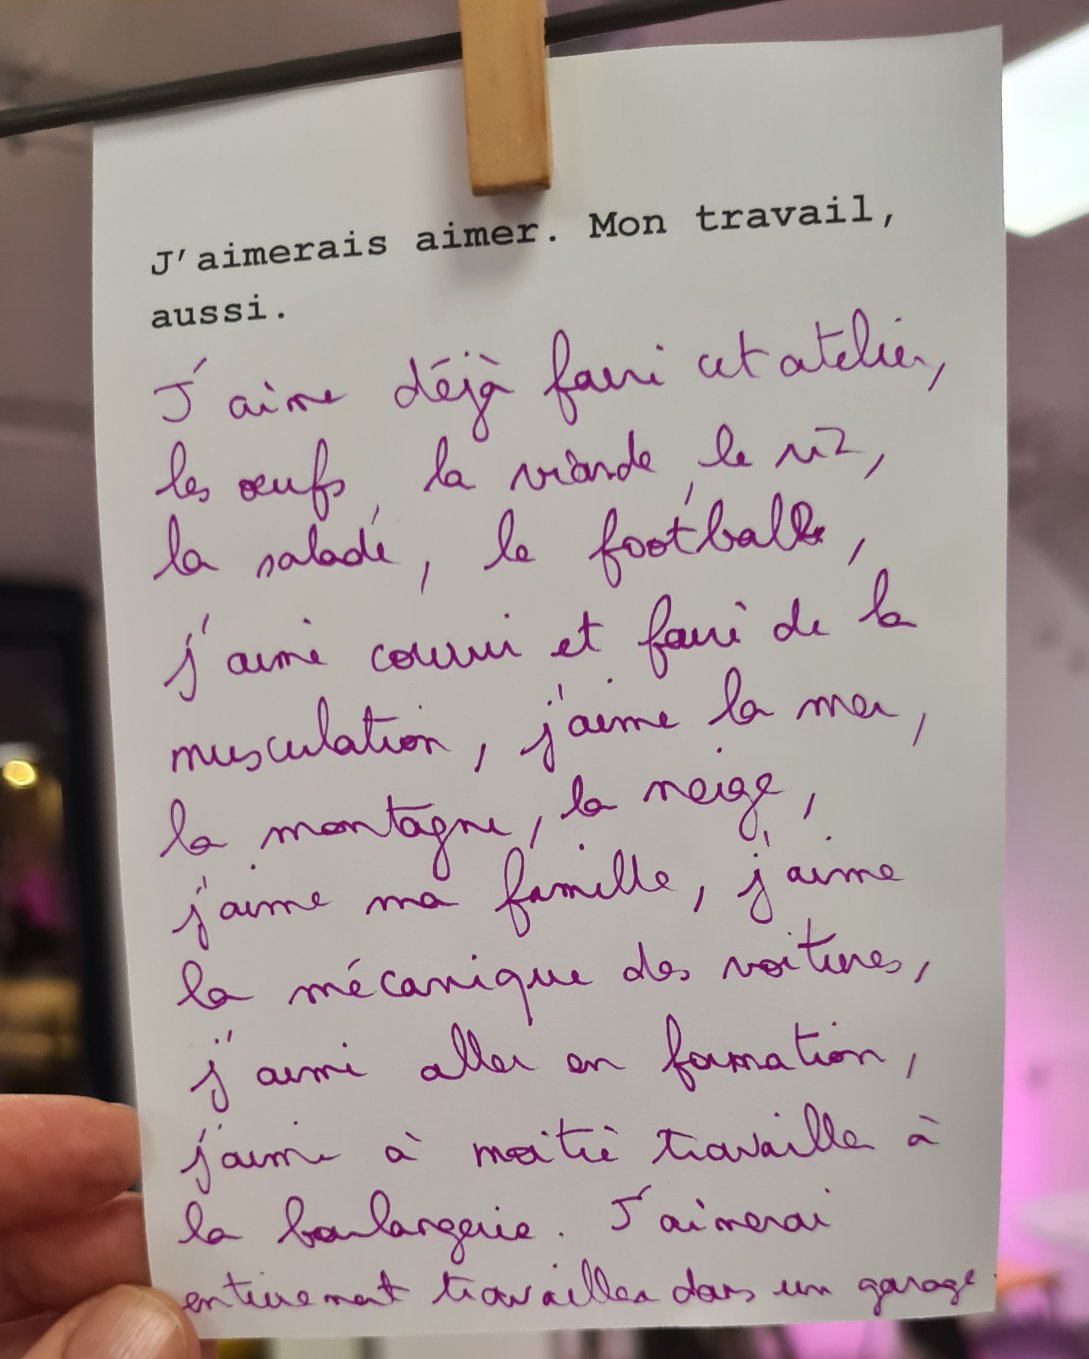 J'aimerais aimer. Mon travail,
aussi.
J'aime déjà faire cet atelier,
les œufs, la viande, le riz,
la salade, le football,
j'aime courir et faire de la
musculation, j'aime la mer,
la montagne, la neige,
j'aime ma famille, j'aime
la mécanique des voitures,
j'aime aller en formation,
j'aime à moitié travailler à
la boulangerie. J'aimerai
entièrement travailler dans un garage